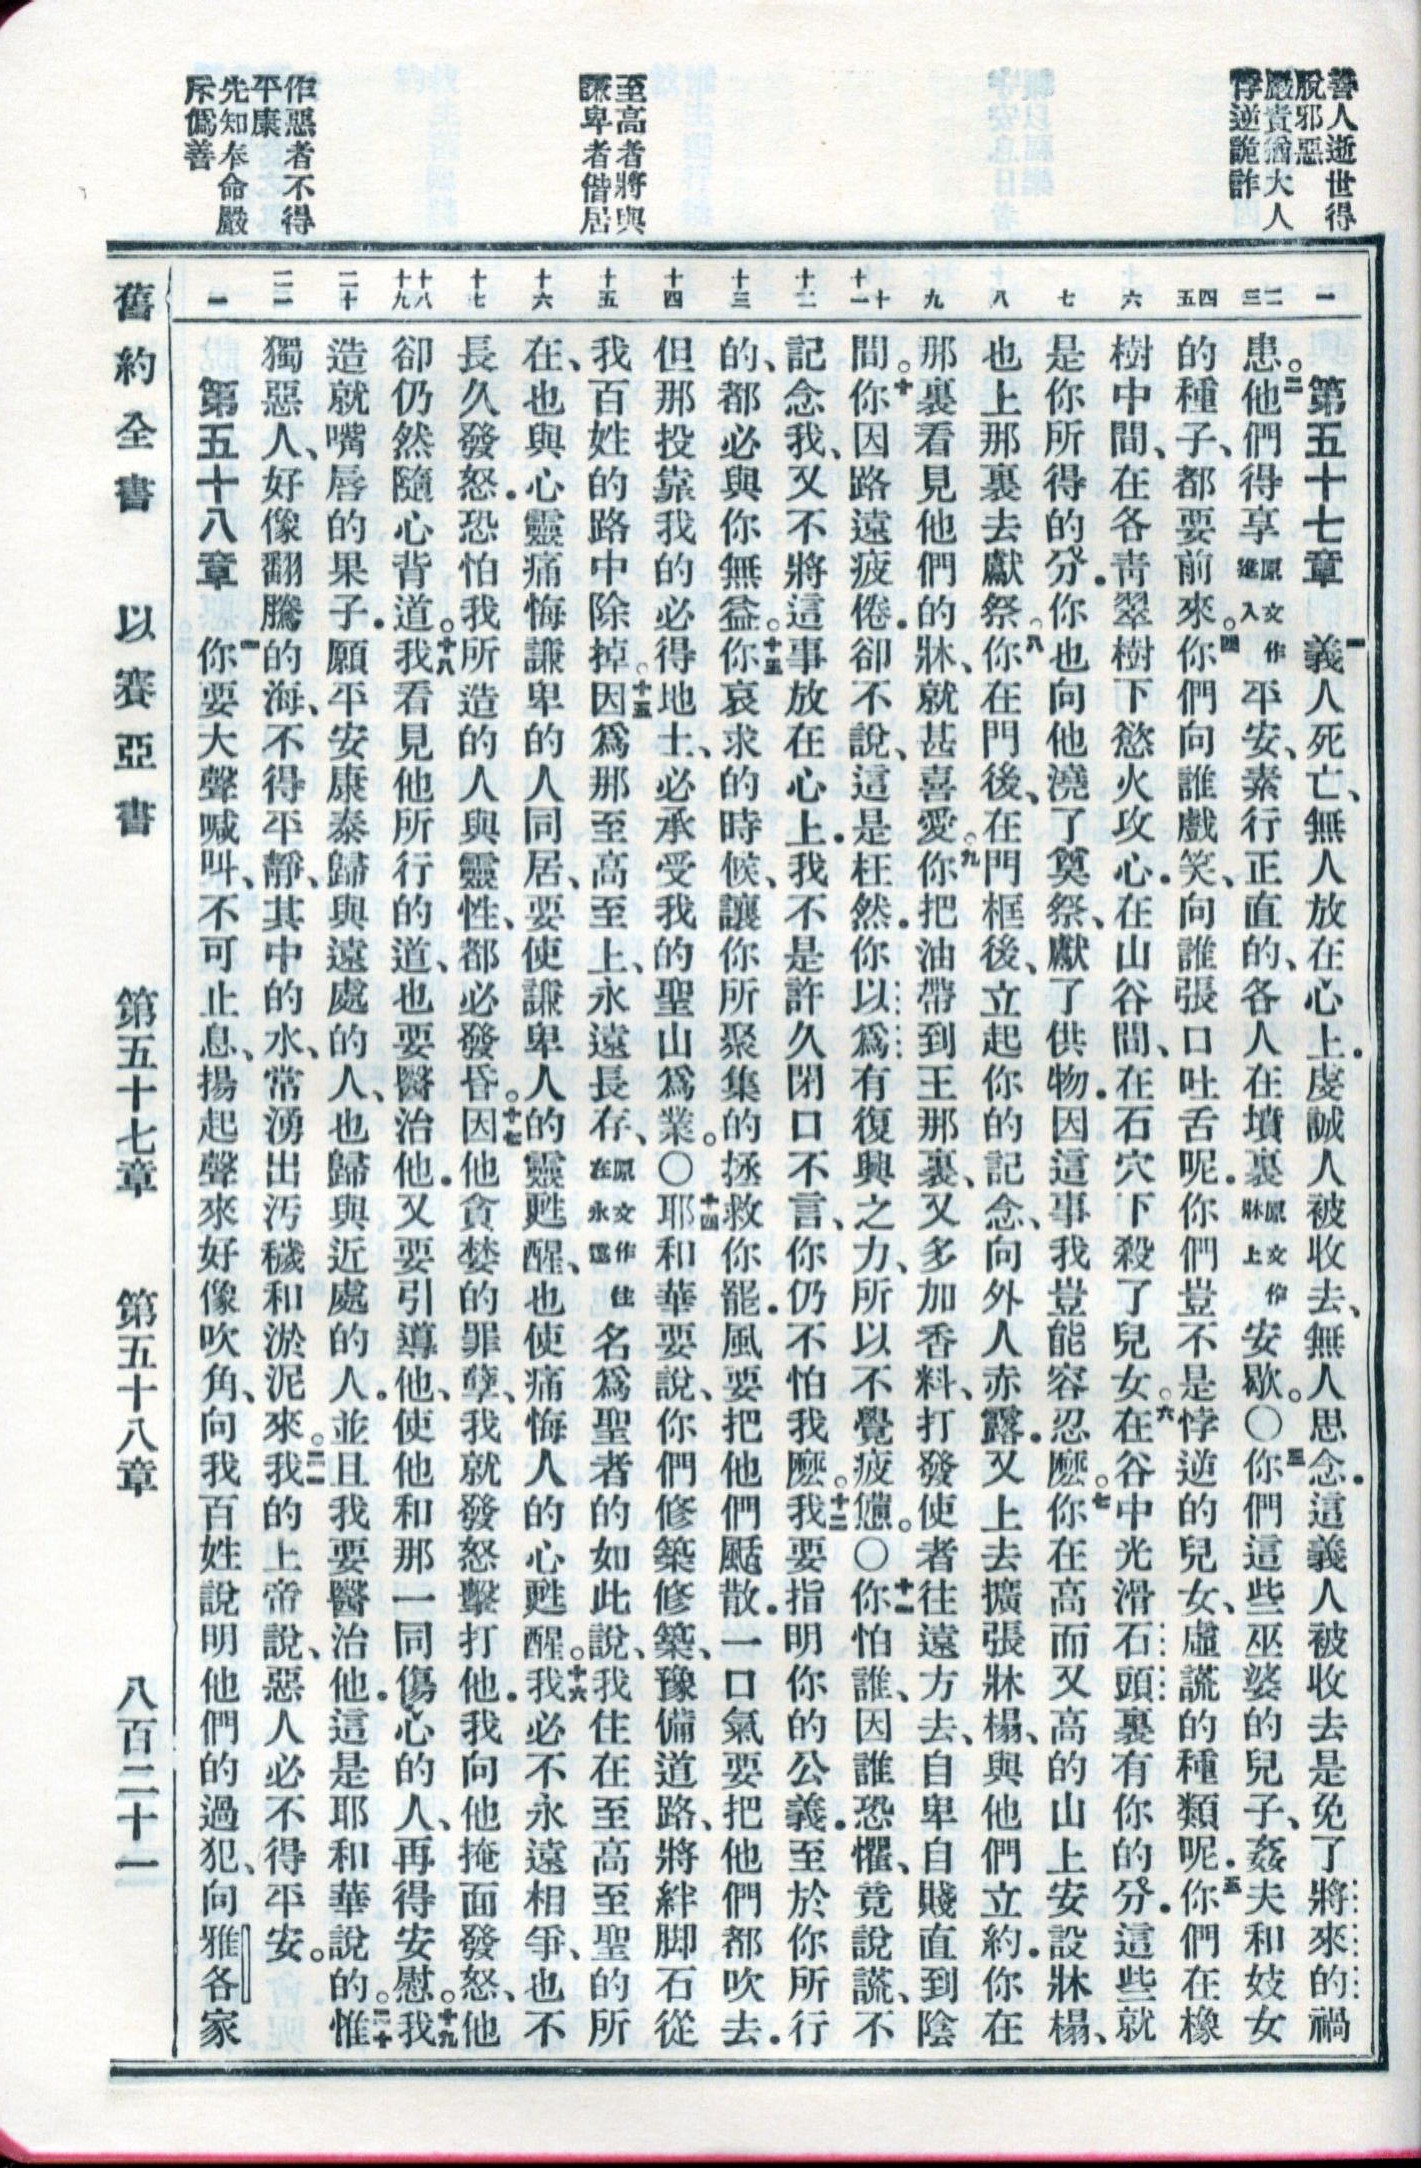 善人逝世得
脫邪惡
嚴責猶大人
悖逆詭詐
至高者將與
謙卑者偕居
作惡者不得
平康
先知奉命嚴
斥僞善
一
二
三
四
五
六
七
八
九
十
十一
十二
十三
十四
十五
十六
十七
十八
十九
二十
二一
一
第五十七章 一義人死亡、無人放在心上．虔誠人被收去、無人思念．這義人被收去是免了將來的禍
患。二他們得享原文作進入平安、素行正直的、各人在墳裏原文作牀上安歇。〇三你們這些巫婆的兒子、姦夫和妓女
的種子、都要前來。四你們向誰戲笑、向誰張口吐舌呢．你們豈不是悖逆的兒女、虛謊的種類呢．五你們在橡
樹中間、在各靑翠樹下慾火攻心．在山谷間、在石穴下殺了兒女。六在谷中光滑石頭裏有你的分．這些就
是你所得的分．你也向他澆了奠祭、獻了供物．因這事我豈能容忍麽。七你在高而又高的山上安設牀榻、
也上那裏去獻祭。八你在門後、在門框後、立起你的記念、向外人赤露．又上去擴張牀榻、與他們立約．你在
那裏看見他們的牀、就甚喜愛。九你把油帶到王那裏、又多加香料、打發使者往遠方去、自卑自賤直到陰
間。十你因路遠疲倦．卻不說、這是枉然．你以爲有復興之力、所以不覺疲憊。〇十一你怕誰、因誰恐懼、竟說謊、不
記念我、又不將這事放在心上．我不是許久閉口不言、你仍不怕我麽。十二我要指明你的公義．至於你所行
的、都必與你無益。十三你哀求的時候、讓你所聚集的拯救你罷．風要把他們颳散．一口氣要把他們都吹去．
但那投靠我的必得地土、必承受我的聖山爲業。〇十四耶和華要說、你們修築修築、豫備道路、將絆脚石從
我百姓的路中除掉。十五因爲那至高至上、永遠長存、原文作住在永遠名爲聖者的如此說、我住在至高至聖的所
在、也與心靈痛悔謙卑的人同居、要使謙卑人的靈甦醒、也使痛悔人的心甦醒。十六我必不永遠相爭、也不
長久發怒．恐怕我所造的人與靈性、都必發昏。十七因他貪婪的罪孽、我就發怒擊打他．我向他掩面發怒、他
卻仍然隨心背道。十八我看見他所行的道、也要醫治他．又要引導他、使他和那一同傷心的人、再得安慰。十九我
造就嘴唇的果子．願平安康泰歸與遠處的人、也歸與近處的人．並且我要醫治他．這是耶和華說的。二十惟
獨惡人、好像翻騰的海、不得平靜、其中的水、常湧出汚穢和淤泥來。二一我的上帝說、惡人必不得平安。
第五十八章 一你要大聲喊叫、不可止息、揚起聲來好像吹角、向我百姓說明他們的過犯、向雅各家
舊約全書 以賽亞書 第五十七章 第五十八章 八百二十一